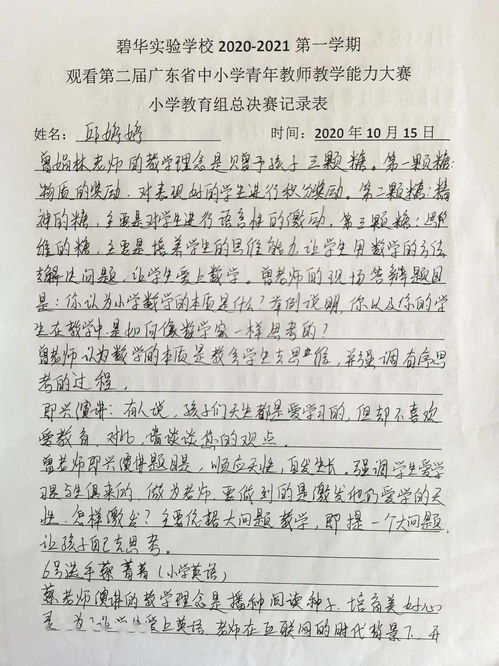 碧华实验学校 2020-2021 第一学期
观看第二届广东省中小学青年教师教学能力大赛
小学教育组总决赛记录表
姓名：邱婷婷 时间：2020 年 10 月 15 日
曾娟林老师的教学理念是赠予孩子三颗糖。第一颗糖：
物质的奖励，对表现好的学生进行积分奖励。第二颗糖：精
神的糖，主要是对学生进行语言性的激励。第三颗糖：思
维的糖，主要是培养学生的思维能力，让学生用数学的方法
去解决问题，让学生爱上数学。曾老师的现场答辩题目
是：你认为小学数学的本质是什么？举例说明，你以及你的学
生在教学中是如何像数学家一样思考的？
曾老师认为数学的本质是教会学生去思维，并强调有序思
考的过程。
即兴演讲：有人说，孩子们天生都是爱学习的，但却不喜欢
爱教育，对此，请谈谈你的观点。
曾老师即兴演讲题目是，顺应天性，自发生长。强调学生爱学
习是与生俱来的，做为老师，要做到的是激发他们爱学的天
性，怎样激发？主要依据大问题教学，即提一个大问题，
让孩子自己去思考。
6号选手蔡菁菁（小学英语）
蔡老师演讲的教学理念是播种阅读种子，培育美好心
灵，为了让学生爱上英语，老师在互联网的时代背景下，开